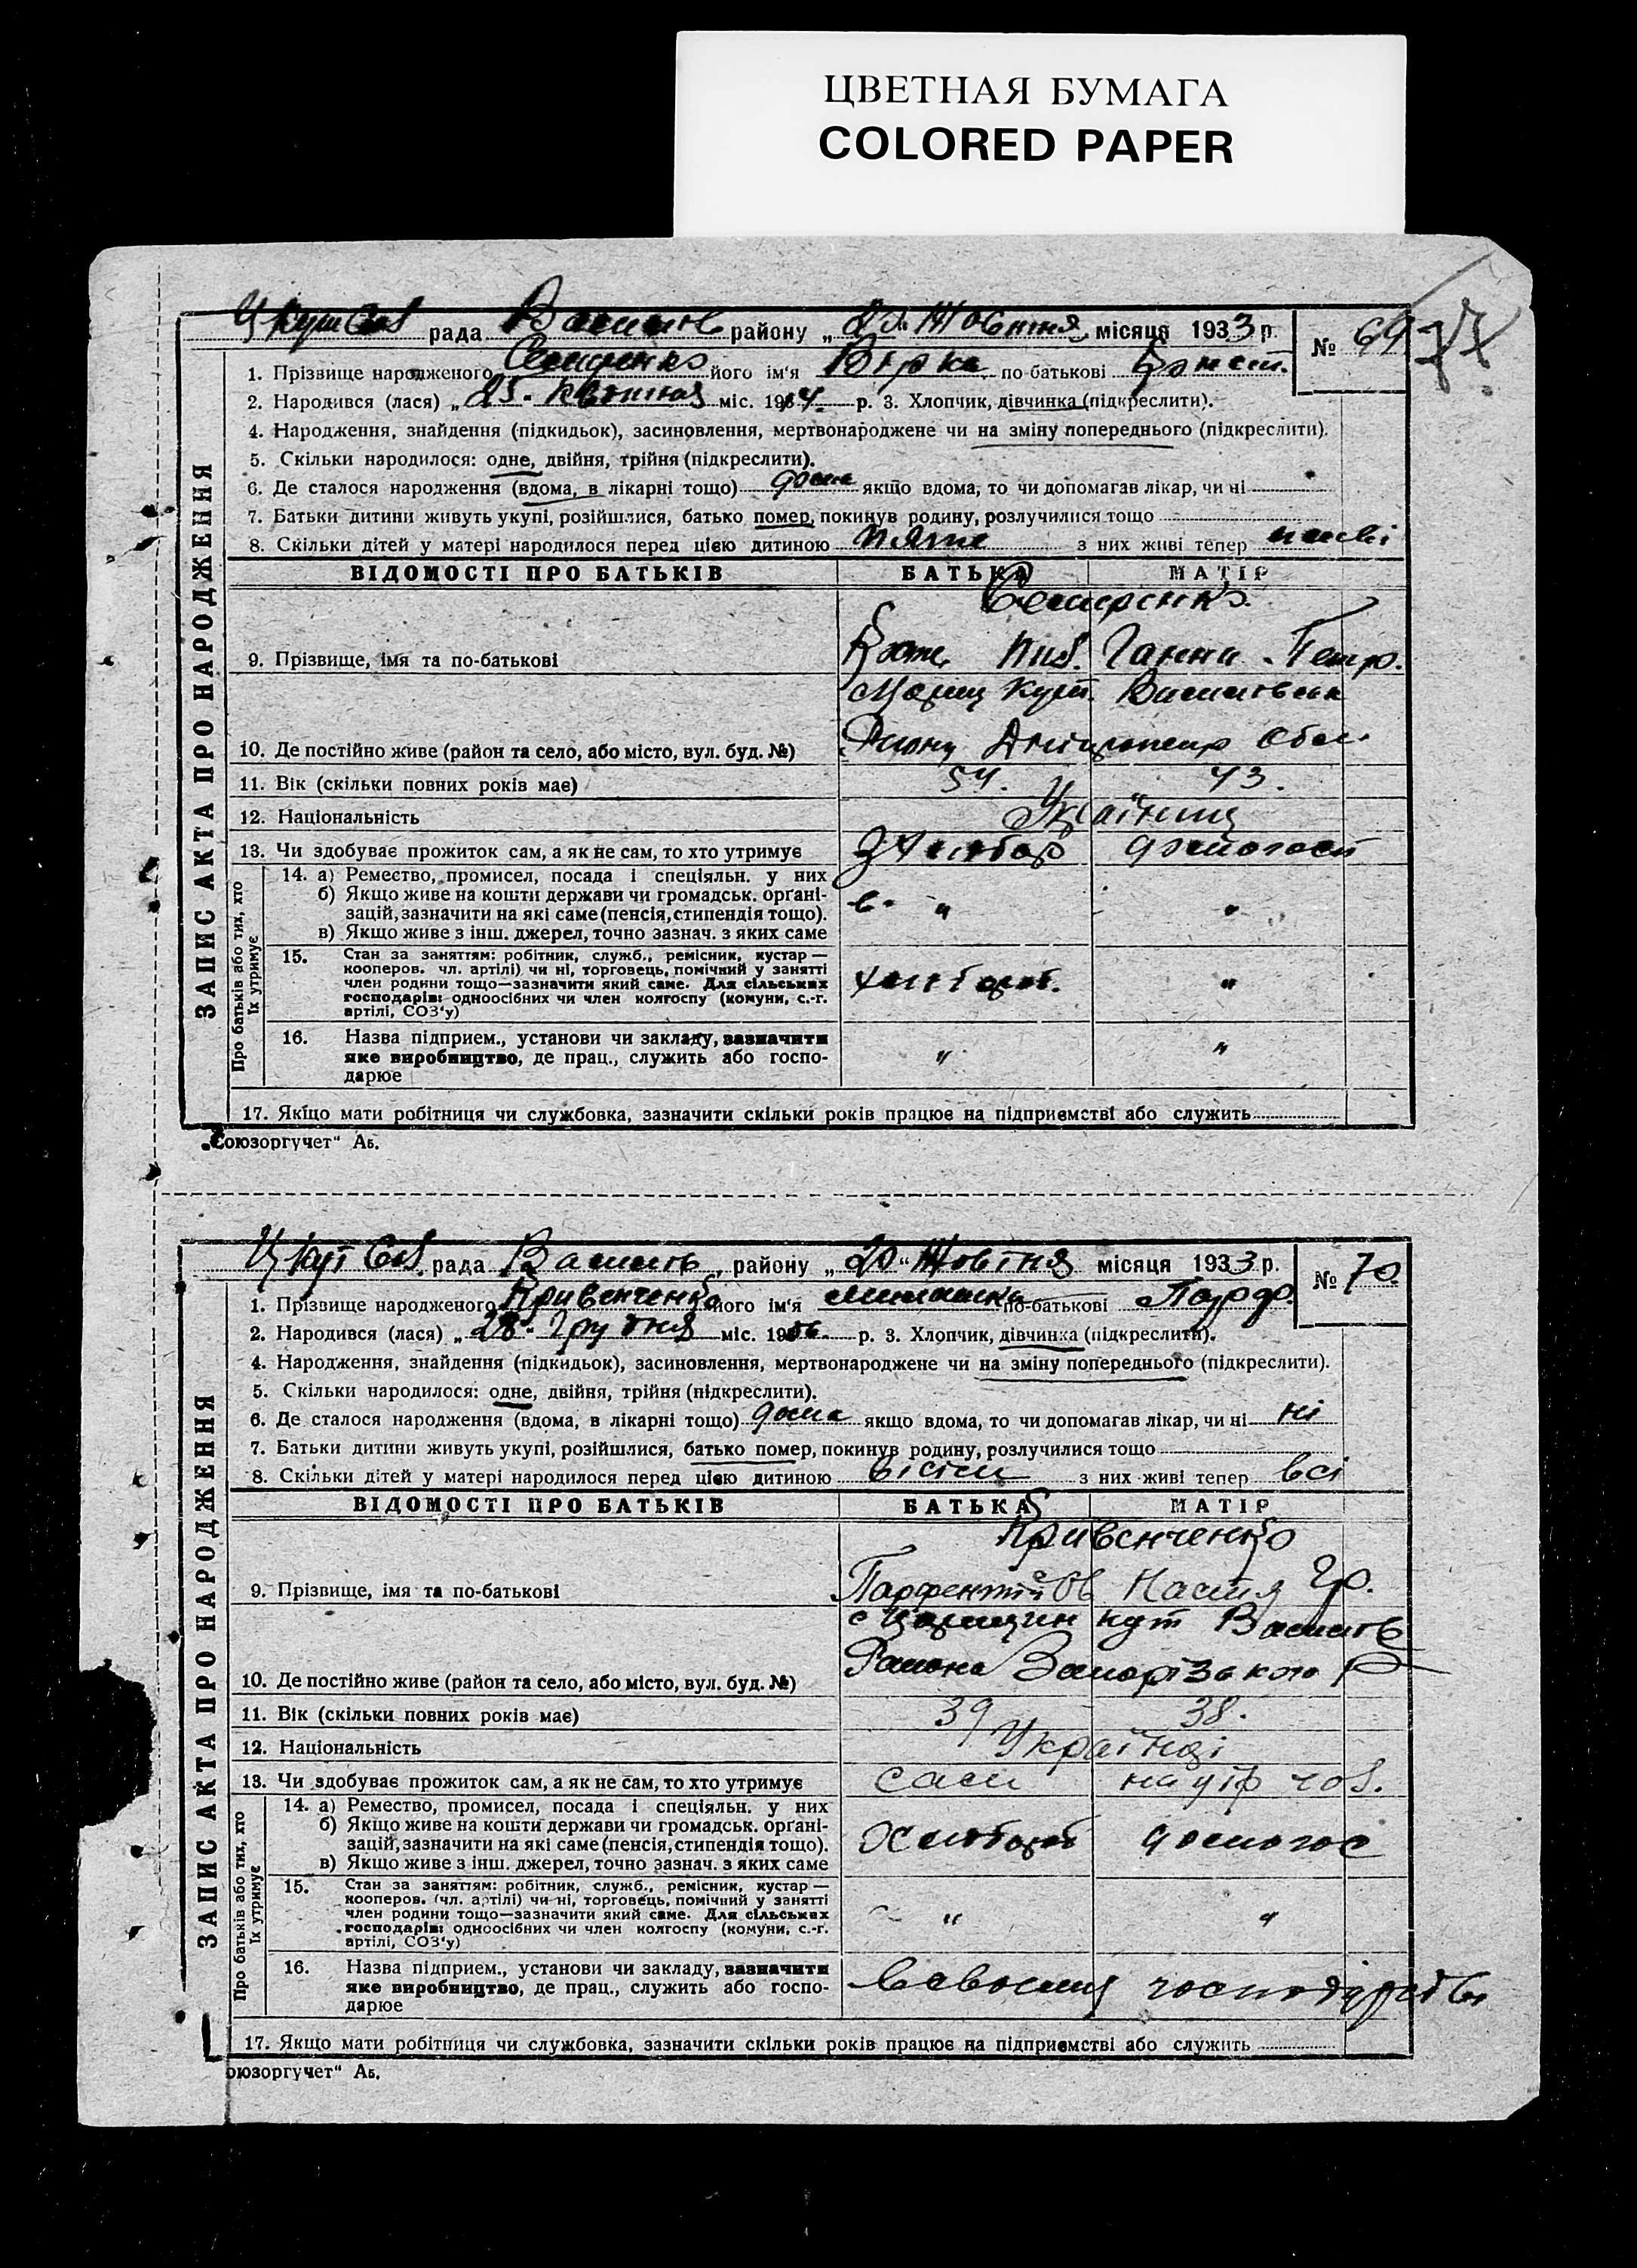 ЦВЕТНАЯ БУМАГА
COLORED PAPER
рада Василів району „20“ Жовтня місяця 1933 р. № 69
1. Прізвище народженого його ім'я Вірка по-батькові
2. Народився (лася) „25“ квітня міс. 19 4. р. 3. Хлопчик, дівчинка (підкреслити).
4. Народження, знайдення (підкидьок), засиновлення, мертвонароджене чи на зміну попереднього (підкреслити).
5. Скільки народилося: одне, двійня, трійня (підкреслити).
6. Де сталося народження (вдома, в лікарні тощо) дома якщо вдома, то чи допомагав лікар, чи ні
7. Батьки дитини живуть укупі, розійшлися, батько помер, покинув родину, розлучилися тощо
8. Скільки дітей у матері народилося перед цією дитиною пяте з них живі тепер
ВІДОМОСТІ ПРО БАТЬКІВ БАТЬКА МАТІР
9. Прізвище, імя та по-батькові Ганна Петр.
Кут Василівськ
10. Де постійно живе (район та село, або місто, вул. буд. №) Району Дніпропетр Обл.
11. Вік (скільки повних років має) 54. 43.
12. Національність Українці
13. Чи здобуває прожиток сам, а як не сам, то хто утримує З хлібор домогосп
14. а) Ремество, промисел, посада і спеціяльн. у них
б) Якщо живе на кошти держави чи громадськ. орґані-
зацій, зазначити на які саме (пенсія, стипендія тощо). „ „
в) Якщо живе з інш. джерел, точно зазнач. з яких саме
15. Стан за заняттям: робітник, служб., ремісник, кустар—
кооперов. чл. артілі) чи ні, торговець, помічний у занятті
член родини тощо—зазначити який саме. Для сільських хлібороб. „
господарів: одноосібних чи член колгоспу (комуни, с.-г.
артілі, СОЗ'у)
16. Назва підприєм., установи чи закладу, зазначити
яке виробництво, де прац., служить або госпо- „ „
дарює
17. Якщо мати робітниця чи службовка, зазначити скільки років працює на підприємстві або служить
ЗАПИС АКТА ПРО НАРОДЖЕННЯ
Про батьків або тих, хто їх утримує
„Союзоргучет“ Аб.
Ц кут Сіл. рада Василів району „20“ Жовтня місяця 1933 р. № 70
1. Прізвище народженого Кривенченко його ім'я по-батькові Парф.
2. Народився (лася) „28“ грудня міс. 19 6. р. 3. Хлопчик, дівчинка (підкреслити).
4. Народження, знайдення (підкидьок), засиновлення, мертвонароджене чи на зміну попереднього (підкреслити).
5. Скільки народилося: одне, двійня, трійня (підкреслити).
6. Де сталося народження (вдома, в лікарні тощо) дома якщо вдома, то чи допомагав лікар, чи ні ні
7. Батьки дитини живуть укупі, розійшлися, батько помер, покинув родину, розлучилися тощо
8. Скільки дітей у матері народилося перед цією дитиною вісім з них живі тепер всі
ВІДОМОСТІ ПРО БАТЬКІВ БАТЬКА МАТІР
Кривенченко
9. Прізвище, імя та по-батькові Парфентій Ів Настя Гр.
с Царицин кут Василів
10. Де постійно живе (район та село, або місто, вул. буд. №) Района Запорізького
11. Вік (скільки повних років має) 39 38.
12. Національність Українці
13. Чи здобуває прожиток сам, а як не сам, то хто утримує сам на утр чол.
14. а) Ремество, промисел, посада і спеціяльн. у них
б) Якщо живе на кошти держави чи громадськ. орґані-
зацій, зазначити на які саме (пенсія, стипендія тощо). Хлібороб домогос
в) Якщо живе з інш. джерел, точно зазнач. з яких саме
15. Стан за заняттям: робітник, служб., ремісник, кустар—
кооперов. (чл. артілі) чи ні, торговець, помічний у занятті
член родини тощо—зазначити який саме. Для сільських „ „
господарів: одноосібних чи член колгоспу (комуни, с.-г.
артілі, СОЗ'у)
16. Назва підприєм., установи чи закладу, зазначити
яке виробництво, де прац., служить або госпо- всвоєму господарстві
дарює
17. Якщо мати робітниця чи службовка, зазначити скільки років працює на підприємстві або служить
ЗАПИС АКТА ПРО НАРОДЖЕННЯ
Про батьків або тих, хто їх утримує
оюзоргучет“ Аб.